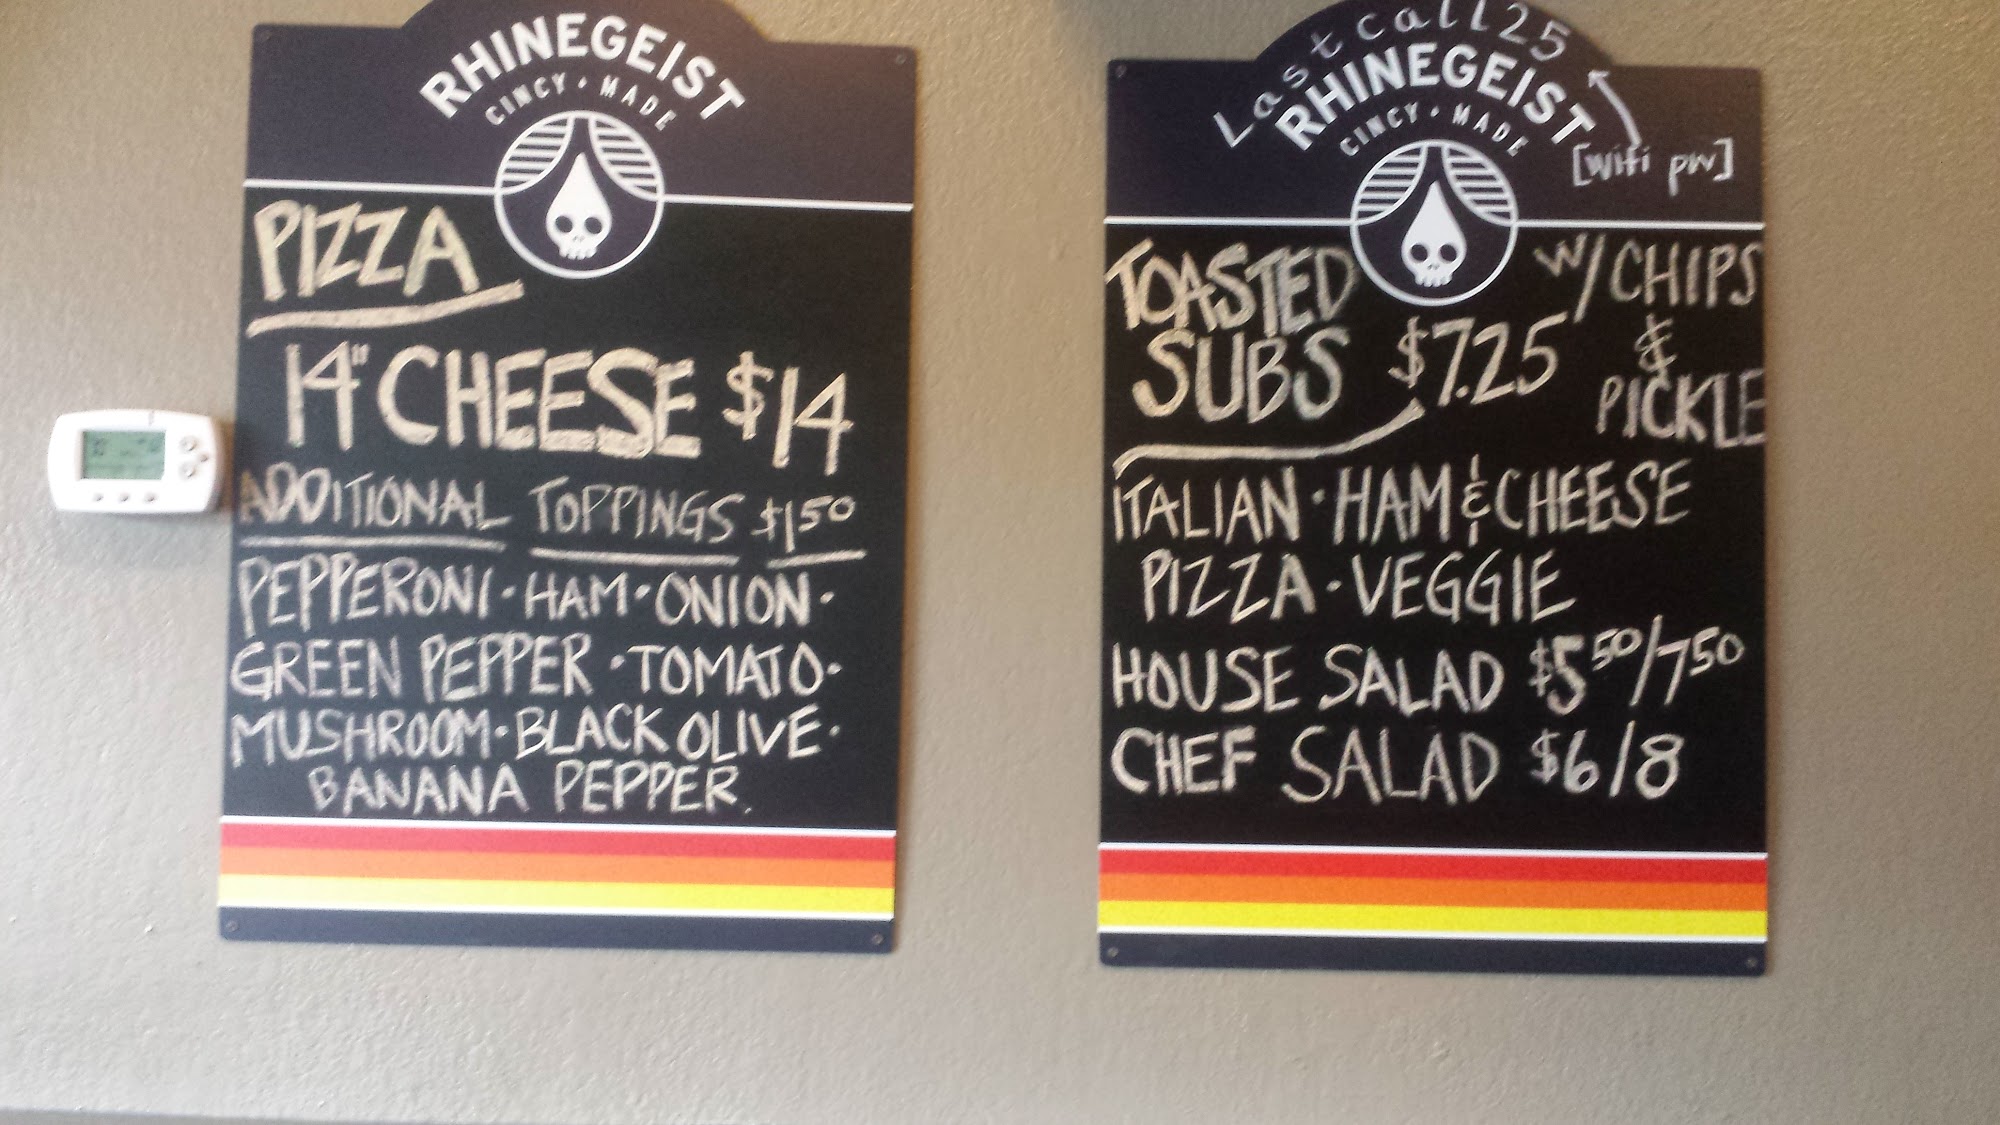 RHINEGEIST
CINCY • MADE
PIZZA
14" CHEESE $14
ADDITIONAL TOPPINGS $1.50
PEPPERONI • HAM • ONION •
GREEN PEPPER • TOMATO •
MUSHROOM • BLACK OLIVE •
BANANA PEPPER.
Last call 25
RHINEGEIST
CINCY • MADE
[wifi pw]
TOASTED W/ CHIPS
SUBS $7.25 & PICKLE
ITALIAN • HAM & CHEESE
PIZZA • VEGGIE
HOUSE SALAD $5 50/7 50
CHEF SALAD $6/8